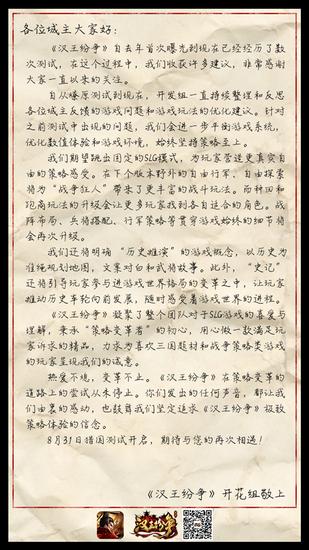 各位城主大家好：
《汉王纷争》自去年首次曝光到现在已经经历了数
次测试，在这个过程中，我们收获许多建议，非常感谢
大家一直以来的关注。
自从燎原测试到现在，开发组一直持续整理和反思
各位城主反馈的游戏问题和游戏玩法的优化建议。针对
之前测试中出现的问题，我们会进一步平衡游戏系统，
优化数值体验和游戏环境，始终坚持策略至上。
我们期望跳出固定的SLG模式，为玩家营造更真实自
由的策略感受。在下个版本野外的自由行军、自由探索
将为“战争狂人”带来了更丰富的战斗玩法。而种田和
跑商玩法的升级会让更多玩家找到各自适合的角色。战
阵布局、兵将搭配、行军策略等贯穿游戏始终的细节将
会再次升级。
我们还将明确“历史推演”的游戏概念，以历史为
准绳规划地图，文案对白和武将故事。此外，“史记”
还将引导玩家参与进游戏世界格局的变革之中，让玩家
推动历史车轮向前发展，随时感受着游戏世界的进程。
《汉王纷争》凝聚了整个团队对于SLG游戏的喜爱与
理解，秉承“策略变革者”的初心，用心做一款满足玩
家诉求的精品，力求为喜欢三国题材和战争策略类游戏
的玩家呈现我们的诚意。
热爱不境，变革不止。《汉王纷争》在策略变革的
道路上的尝试从未停止。你们发出的任何声音，都让我
们由衷的感动，也鼓舞我们坚定追求《汉王纷争》极致
策略体验的信念。
8月31日猎国测试开启，期待与您的再次相遇！
《汉王纷争》开花组敬上
汉王纷争